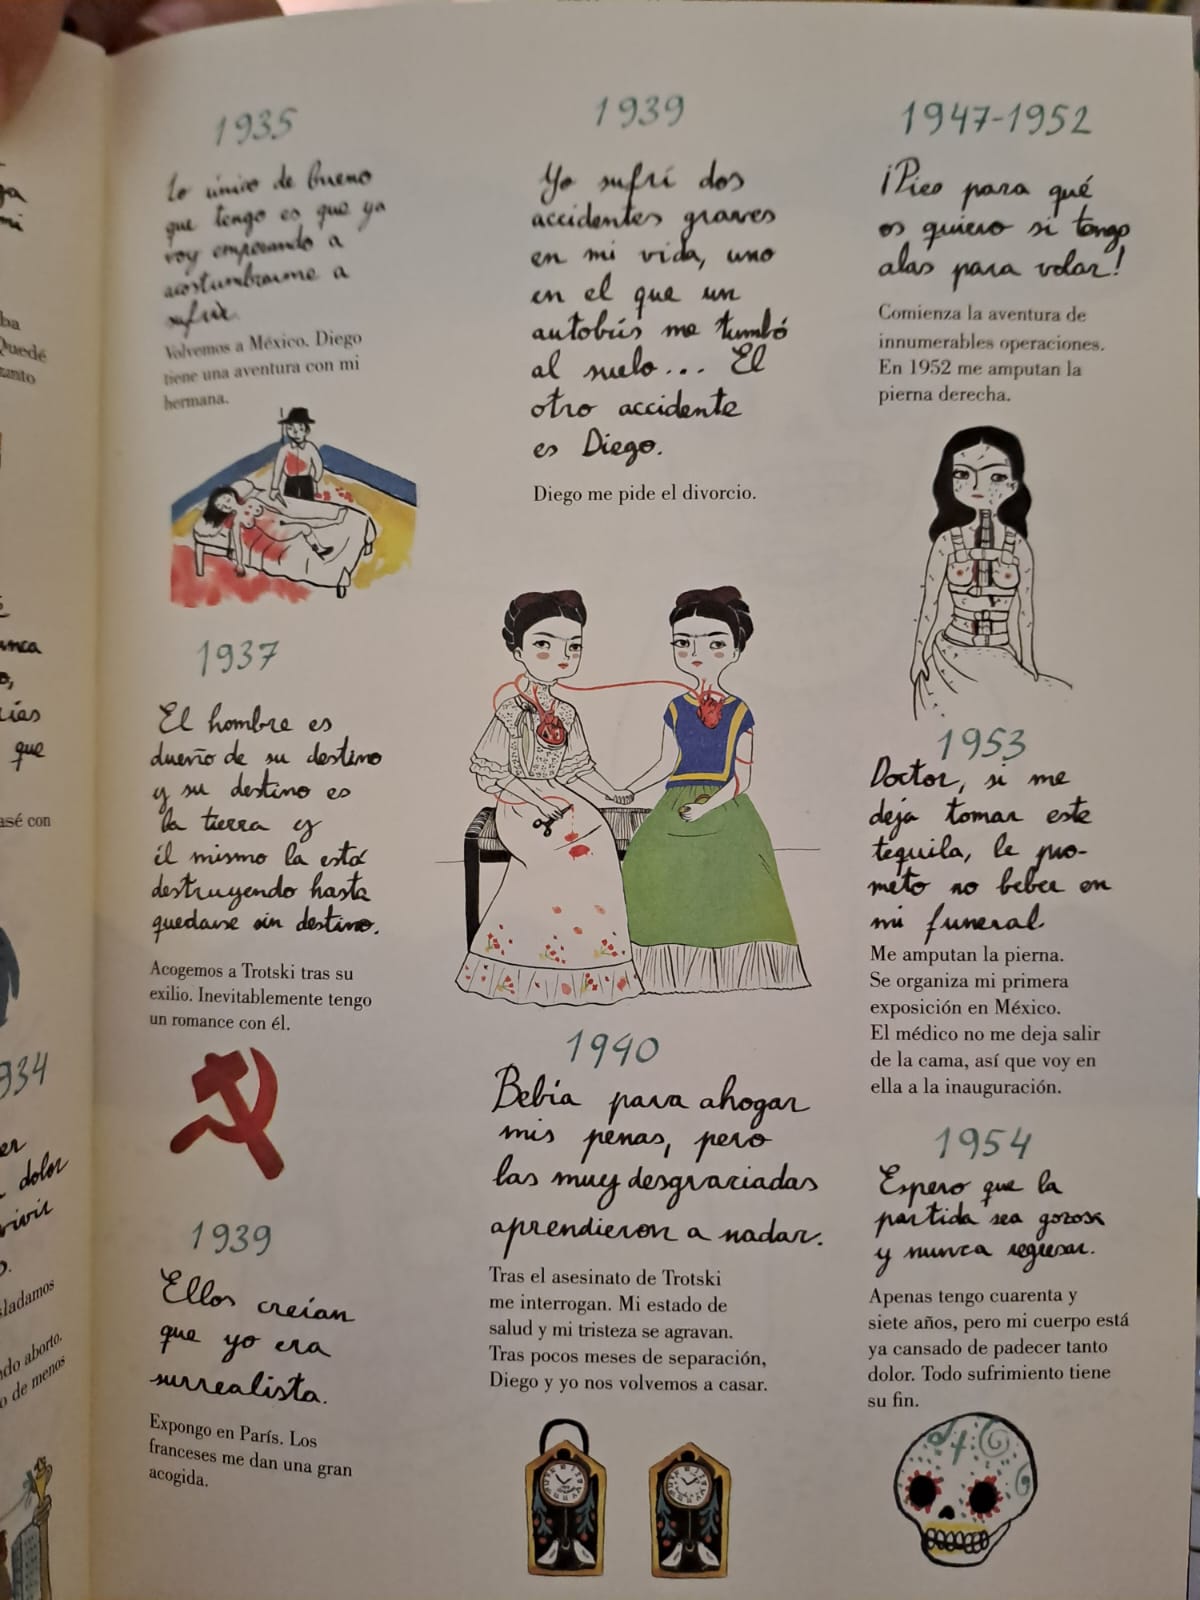 1935
Lo único de bueno
que tengo es que ya
voy empezando a
acostumbrarme a
sufrir.
Volvemos a México. Diego
tiene una aventura con mi
hermana.
1937
El hombre es
dueño de su destino
y su destino es
la tierra y
él mismo la está
destruyendo hasta
quedarse sin destino.
Acogemos a Trotski tras su
exilio. Inevitablemente tengo
un romance con él.
1939
Ellos creían
que yo era
surrealista.
Expongo en París. Los
franceses me dan una gran
acogida.
1939
Yo sufrí dos
accidentes graves
en mi vida, uno
en el que un
autobús me tumbó
al suelo... El
otro accidente
es Diego.
Diego me pide el divorcio.
1940
Bebía para ahogar
mis penas, pero
las muy desgraciadas
aprendieron a nadar.
Tras el asesinato de Trotski
me interrogan. Mi estado de
salud y mi tristeza se agravan.
Tras pocos meses de separación,
Diego y yo nos volvemos a casar.
1947-1952
¡Pies para qué
os quiero si tengo
alas para volar!
Comienza la aventura de
innumerables operaciones.
En 1952 me amputan la
pierna derecha.
1953
Doctor, si me
deja tomar este
tequila, le pro-
meto no beber en
mi funeral.
Me amputan la pierna.
Se organiza mi primera
exposición en México.
El médico no me deja salir
de la cama, así que voy en
ella a la inauguración.
1954
Espero que la
partida sea gozosa
y nunca regresar.
Apenas tengo cuarenta y
siete años, pero mi cuerpo está
ya cansado de padecer tanto
dolor. Todo sufrimiento tiene
su fin.